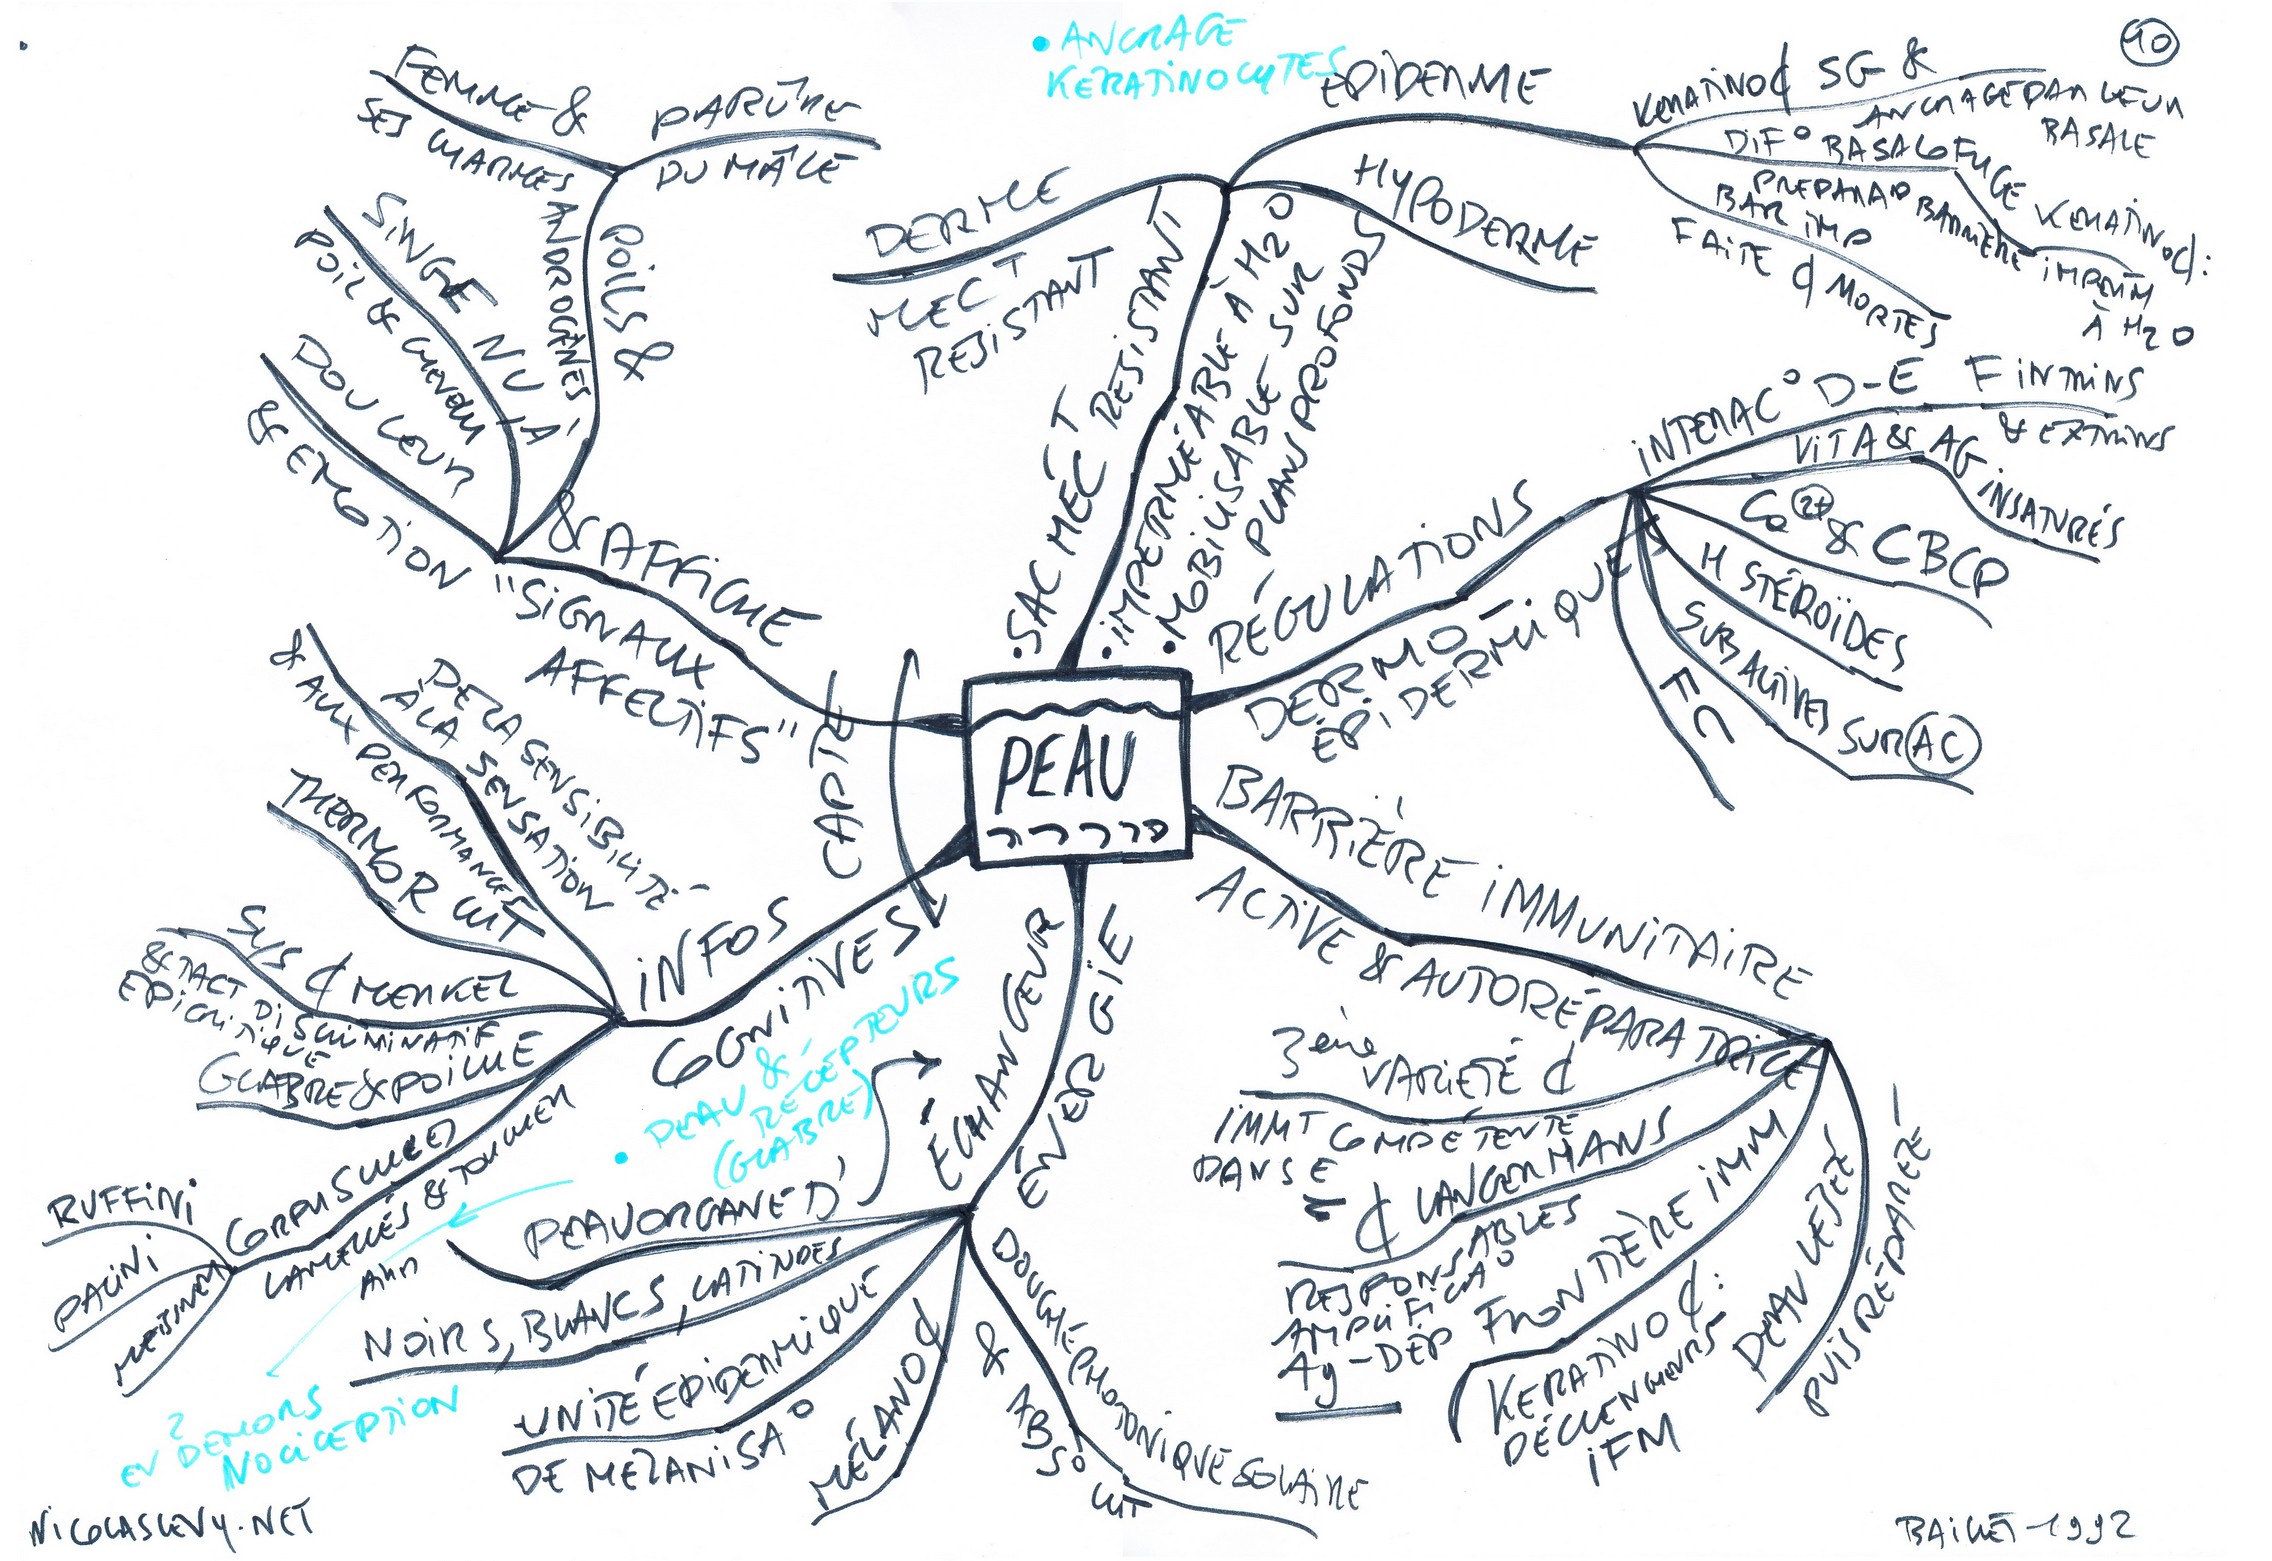 • ANCRAGE
KERATINOCYTES
10
FEMME &
SES CHARMES
PARURE
DU MÂLE
POILS &
ANDROGÈNES
SINGE NU À
POIL & CHEVEU
DOULEUR
& EMOTION
& AFFICHE
"SIGNAUX
AFFECTIFS"
CAPTE
DERME
MEC T
RESISTANT
EPIDERME
HYPODERME
KERATINO¢ SG &
ANCRAGE PAR LEUR
BASALE
DIF° BASALOFUGE KERATINO¢:
PREPARA° BARRIÈRE IMPERM
À H2O
BAR IMP
FAITE ¢ MORTES
• SAC MÉCT RESISTANT
• IMPERMÉABLE À H2O
• MOBILISABLE SUR
PLANS PROFONDS
RÉGULATIONS
DERMO-
ÉPIDERMIQUE
INTERAC° D-E F INTRINS
& EXTRINS
VIT A & AG INSATURÉS
Ca 2+ & CBCP
H STÉROÏDES
SUB ACTIVES SUR AC
FC
PEAU
BARRIÈRE IMMUNITAIRE
ACTIVE & AUTORÉPARATRICE
3ème VARIÉTÉ ¢
IMMT COMPÉTENTE
DANS E
¢ LANGERMANS
RESPONSABLES
AMPLIFICA°
Ag-DÉP
FRONTIÈRE IMM
KERATINO¢:
DÉCLENCHEURS
IFM
PEAU LESÉE
PUIS RÉPARÉE
INFOS
COGNITIVES
DE LA SENSIBILITÉ
À LA SENSATION
& AUX PERFORMANCES
THERMOR CUT
SYS ¢ MERKEL
& TACT DISCRIMINATIF
EPICRITIQUE
GLABRE & POILUE
CORPUSCULES
LAMELLÉS & TOUCHER
RUFFINI
PACINI
MEISSNER
• PEAU &
RÉCEPTEURS
(GLABRE)
EN DEHORS
NOCICEPTION
ÉCHANGEUR
ÉNERGIE
PEAU ORGANE D'
NOIRS, BLANCS, LATINDES
UNITÉ EPIDERMIQUE
DE MELANISA°
MÉLANO¢
DOUCHE PHOTONIQUE SOLAIRE
& ABS° CUT
NICOLASLEVY.NET
BAILLET-1992